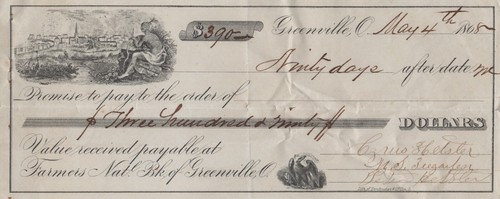 $390– Greenville, O. May 4th 1868
Ninty days after date we
Promise to pay to the order of
Three hundred & ninty DOLLARS
Value received payable at
Farmers Natl. Bk. of Greenville, O.